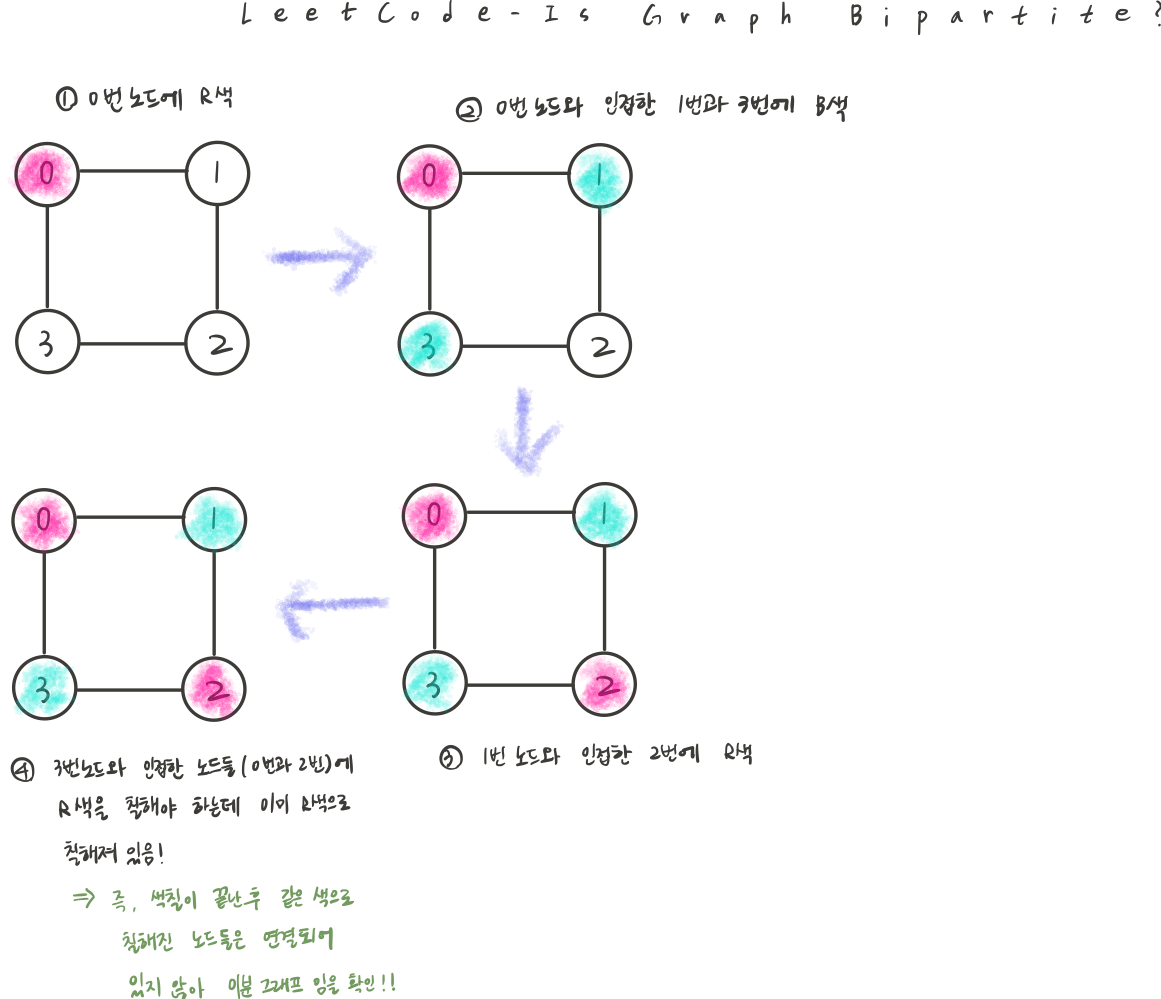 LeetCode-Is Graph Bipartite?
① 0번 노드에 R색
② 0번 노드와 인접한 1번과 3번에 B색
0 1
3 2
0 1
3 2
0 1
3 2
0 1
3 2
③ 1번 노드와 인접한 2번에 R색
④ 3번노드와 인접한 노드들(0번과 2번)에
R색을 칠해야 하는데 이미 R색으로
칠해져 있음!
⇒ 즉, 색칠이 끝난후 같은 색으로
칠해진 노드들은 연결되어
있지 않아 이분 그래프 임을 확인!!